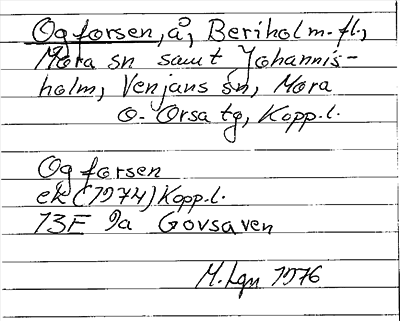 Ogforsen, å, Beriholm-fl.,
Mora sn samt Johannis-
holm, Venjans sn, Mora
o. Orsa tg, Kopp.l.
Ogforsen
ek (1974) Kopp.l.
13F 9a Govsaven
M. Lgn 1976